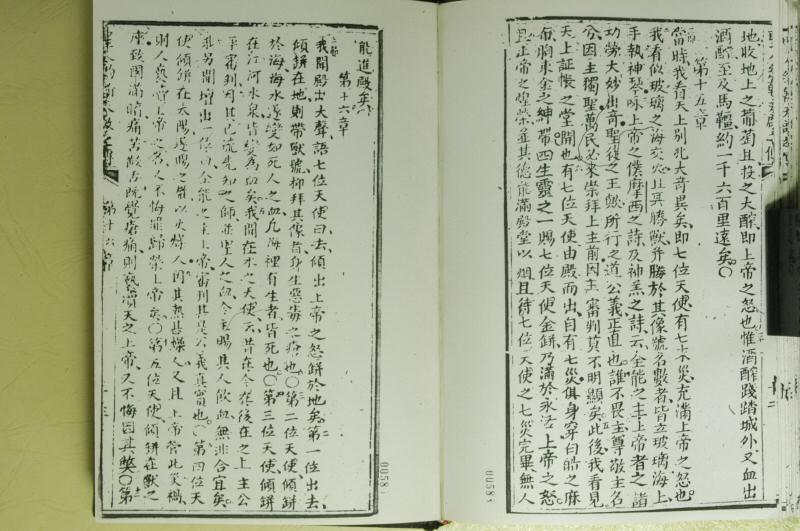 地收地上之葡萄且投之大醡即上帝之怒也惟酒醡踐踏城外又血出
酒醡至及馬韁約一千六百里遠矣〇
第十五章
當時我看天上別兆大奇異矣即七位天使有七末災充滿上帝之怒也
我看似玻璃之海交火且其勝獸并勝於其像號名數者皆立玻璃海上
手執神琴咏上帝之僕摩西之詩及神羔之詩云全能之主上帝者之諸
功勞大妙出奇聖徒之王歟所行之道公義正直也誰不畏主尊敬主名
公因主獨聖萬民必來崇拜上主前因主審判莫不明顯矣此後我看見
天上証帳之堂開也有七位天使由殿而出自有七災俱身穿白皓之麻
布胸束金之紳帶四生靈之一賜七位天使金餅乃滿於永活上帝之怒
且正帝之煌榮並其德能滿殿堂以烟且待七位天使之七災完畢無人
能進殿矣
第十六章
我聞殿出大聲語七位天使曰去傾出上帝之怒餅於地矣第一位出去
傾餅在地則帶獸號抑拜其像者身生惡毒之瘡也〇第二位天使傾餅
於海海水遂變如死人之血凡海裡有生者皆死也〇第三位天使傾餅
在江河水泉皆變為血矣我聞在水之天使云昔在今在後在之上主公
審判因其已流先知之師並聖人之血今主賜其人飲血無非合宜矣
我另聞壇出一位曰全能之主上帝審判其是公義真實也〇第四位天
使傾餅在太陽遂賜之能以火燥人因其熱甚燥人又且上帝管此災禍
則人褻瀆上帝之名人不悔罪歸榮上帝矣〇第五位天使傾餅在獸之
座致國滿暗痛苦齩舌既覺瘡痛則褻瀆天之上帝又不悔因其獘〇第
第十六章
十三
0058
0058